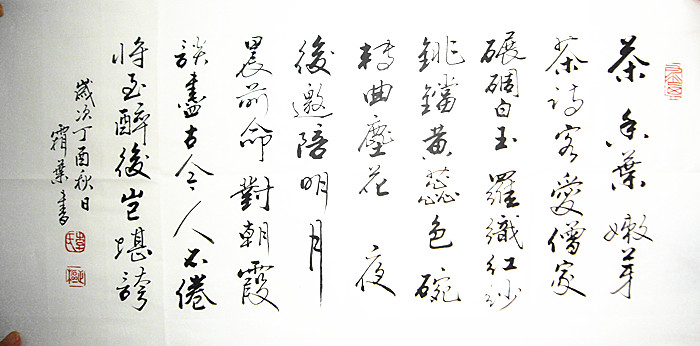 茶 香葉嫩芽
茶詩客愛僧家
碾碉白玉 羅織紅紗
銚鐺黃蕊色 碗
轉曲塵花 夜
後邀陪明月
晨前命對朝霞
談盡古今人不倦
將至醉後豈堪誇
歲次丁酉秋日
霜葉書